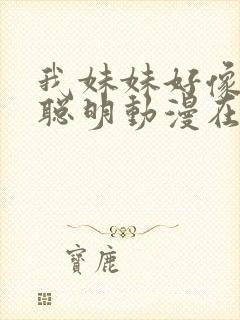 我妹妹好像
聪明動漫在
寶鹿